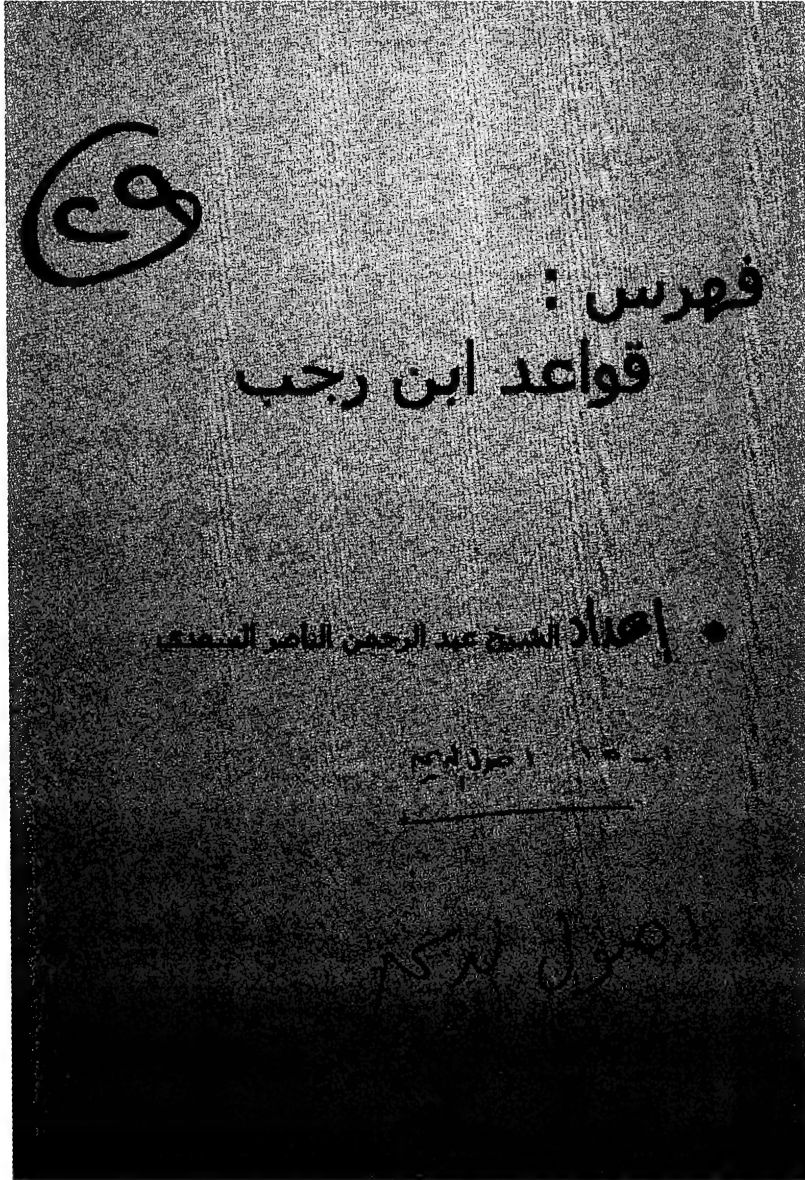 فهرس :
قواعد ابن رجب
• إعداد الشيخ عبد الرحمن الناصر السعدى
اصول
اصول